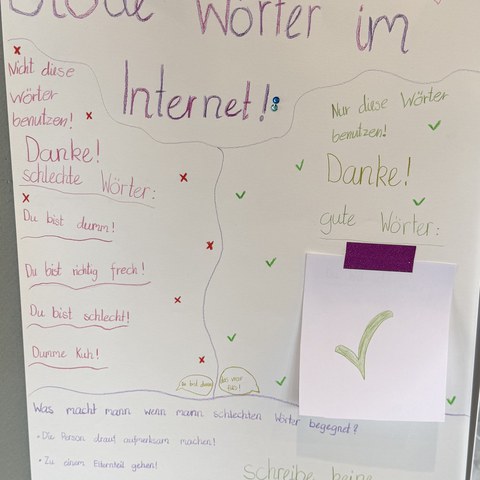 Blöde Wörter im
Internet!
Nicht diese
Wörter
benutzen!
Danke!
schlechte Wörter:
Du bist dumm!
Du bist richtig frech!
Du bist schlecht!
Dumme Kuh!
Nur diese Wörter
benutzen!
Danke!
gute Wörter:
Was macht mann wenn mann schlechten Wörter begegnet?
• Die Person drauf aufmerksam machen!
• Zu einem Elternteil gehen!
schreibe keine